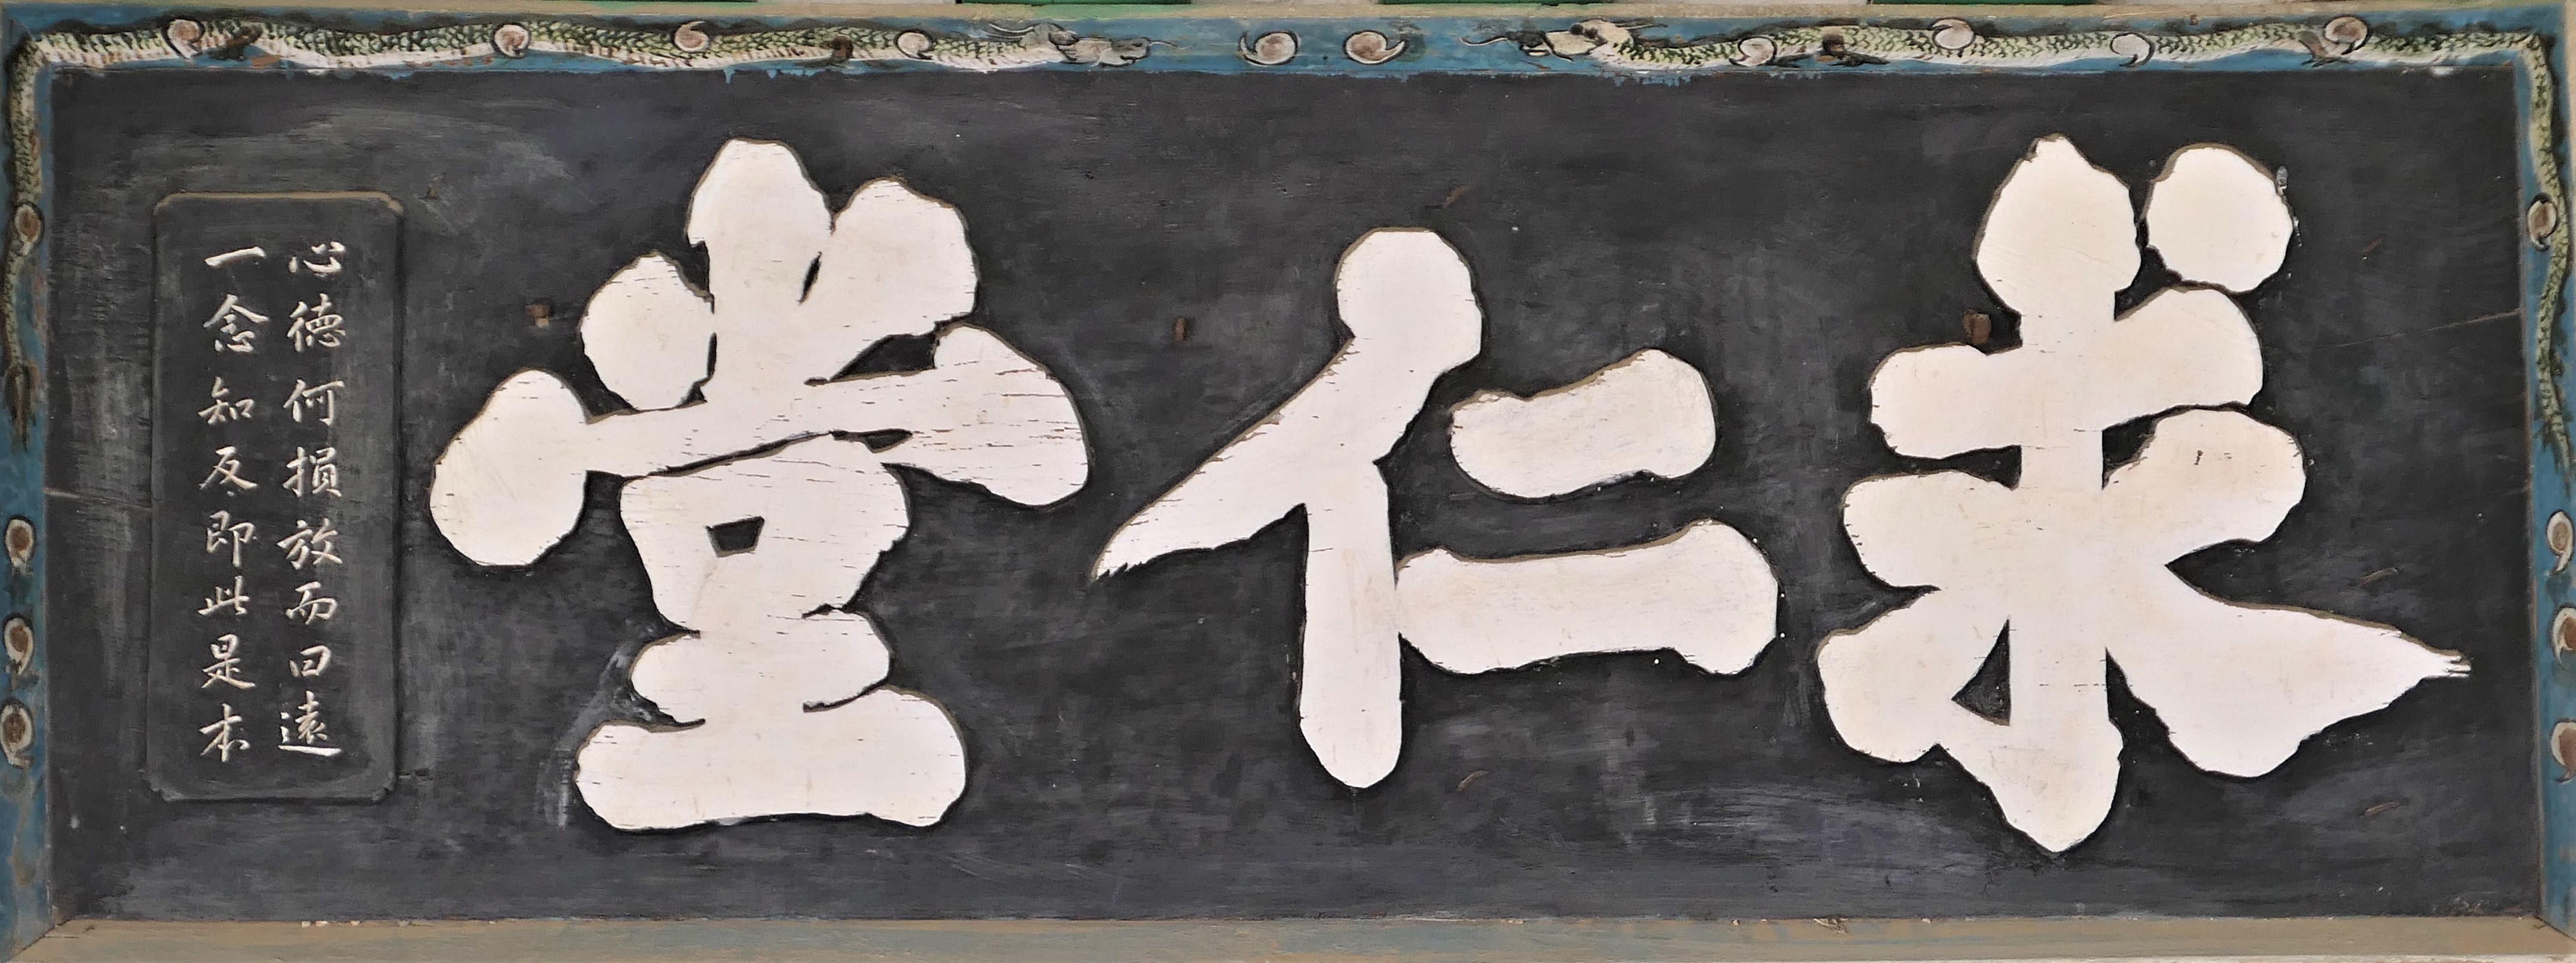 求仁堂
心德何損放而曰遠
一念知反即此是本